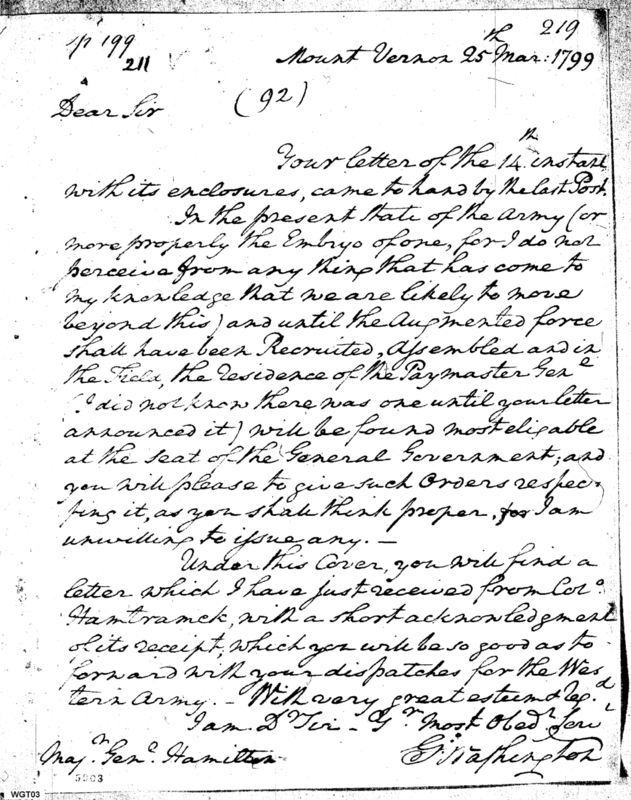 p 199
211
219
Mount Vernon 25th Mar: 1799
Dear Sir
(92)
Your letter of the 14th instant
with its enclosures, came to hand by the last Post.
In the present State of the Army (or
more properly the Embryo of one, for I do not
perceive from any thing that has come to
my knowledge that we are likely to move
beyond this) and until the Augmented force
shall have been Recruited, Assembled and in
the Field, the residence of the Paymaster Genl
(I did not know there was one until your letter
announced it) will be found most eligable
at the seat of the General Government; and
you will please to give such Orders respec-
ting it, as you shall think proper, for I am
unwilling to issue any. —
Under this Cover, you will find a
letter which I have just received from Colo.
Hamtramck, with a short acknowledgment
of its receipt, which you will be so good as to
forward with your dispatches for the Wes
tern Army. — With very great esteem & regd
I am Dr Sir - Yr most Obedt Serv
Majr Genl Hamilton
Go: Washington
WGT03